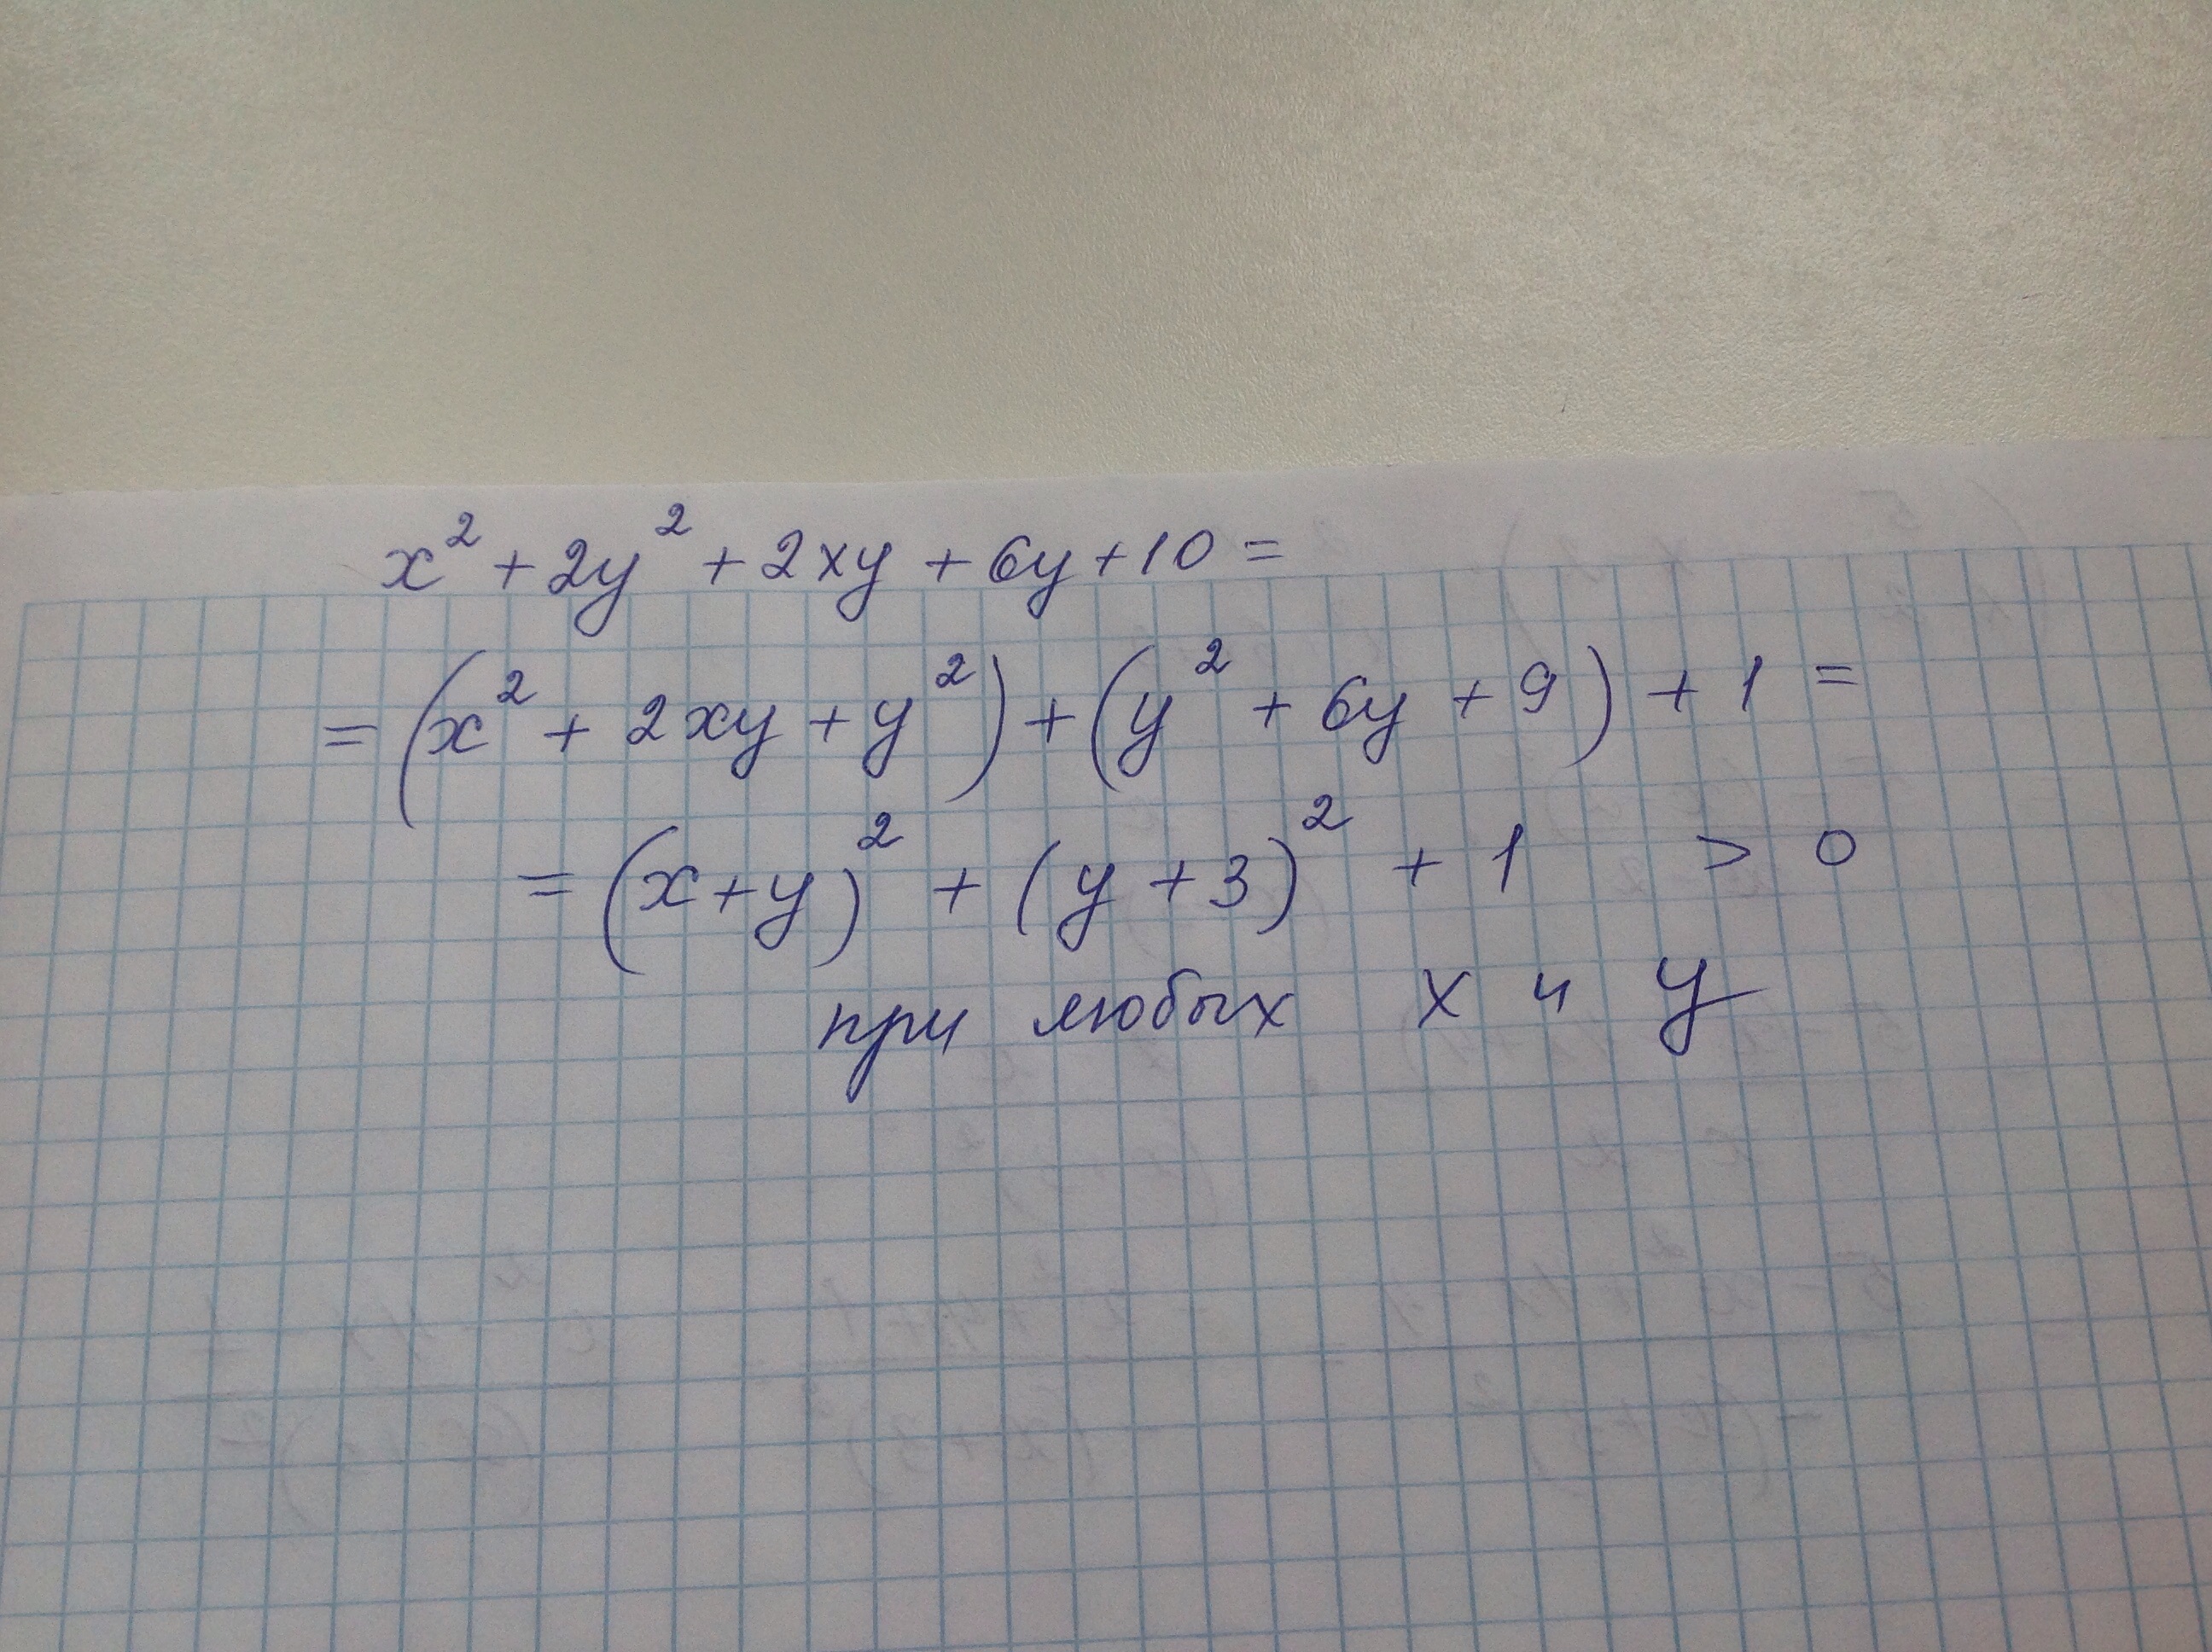 x² + 2y² + 2xy + 6y + 10 =
= (x² + 2xy + y²) + (y² + 6y + 9) + 1 =
= (x + y)² + (y + 3)² + 1 > 0
при любых x и y